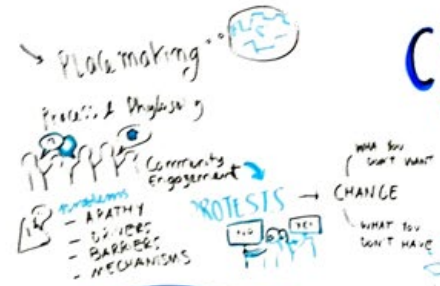 Placemaking
Process &
Community
Engagement
problems
- APATHY
- DRIVERS
- BARRIERS
- MECHANISMS
PROTESTS → CHANGE
WHAT YOU
DON'T WANT
WHAT YOU
DON'T HAVE